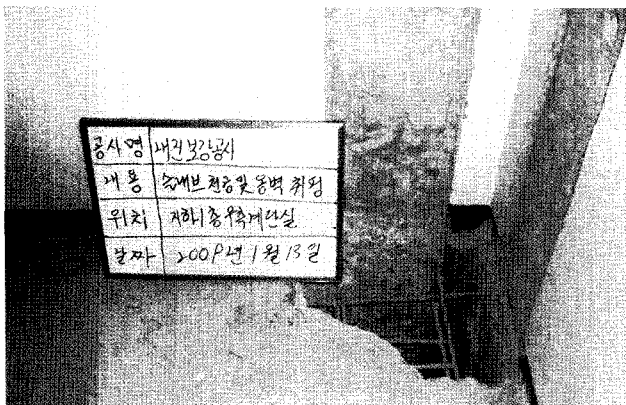 공사명 내진보강공사
내용 슬래브 천공및 옹벽 취핑
위치 지하1층 우측계단실
날짜 2009년 1월 13일